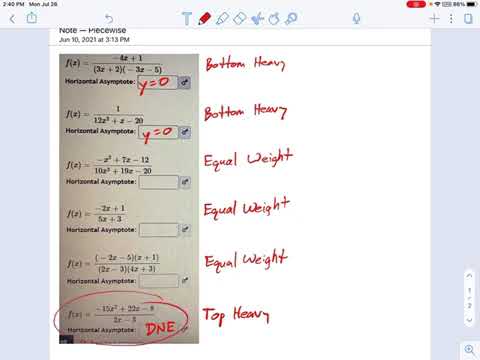 2:40 PM Mon Jul 26
86%
Note — Piecewise
Jun 10, 2021 at 3:13 PM
f(x) = (−4x + 1)/((3x + 2)(−3x − 5)) Bottom Heavy
Horizontal Asymptote: y=0
f(x) = 1/(12x² + x − 20) Bottom Heavy
Horizontal Asymptote: y=0
f(x) = (−x² + 7x − 12)/(10x² + 19x − 20) Equal Weight
Horizontal Asymptote:
f(x) = (−2x + 1)/(5x + 3) Equal Weight
Horizontal Asymptote:
f(x) = ((−2x − 5)(x + 1))/((2x − 3)(4x + 3)) Equal Weight
Horizontal Asymptote:
f(x) = (−15x² + 22x − 8)/(2x − 3) Top Heavy
Horizontal Asymptote: DNE
1
2